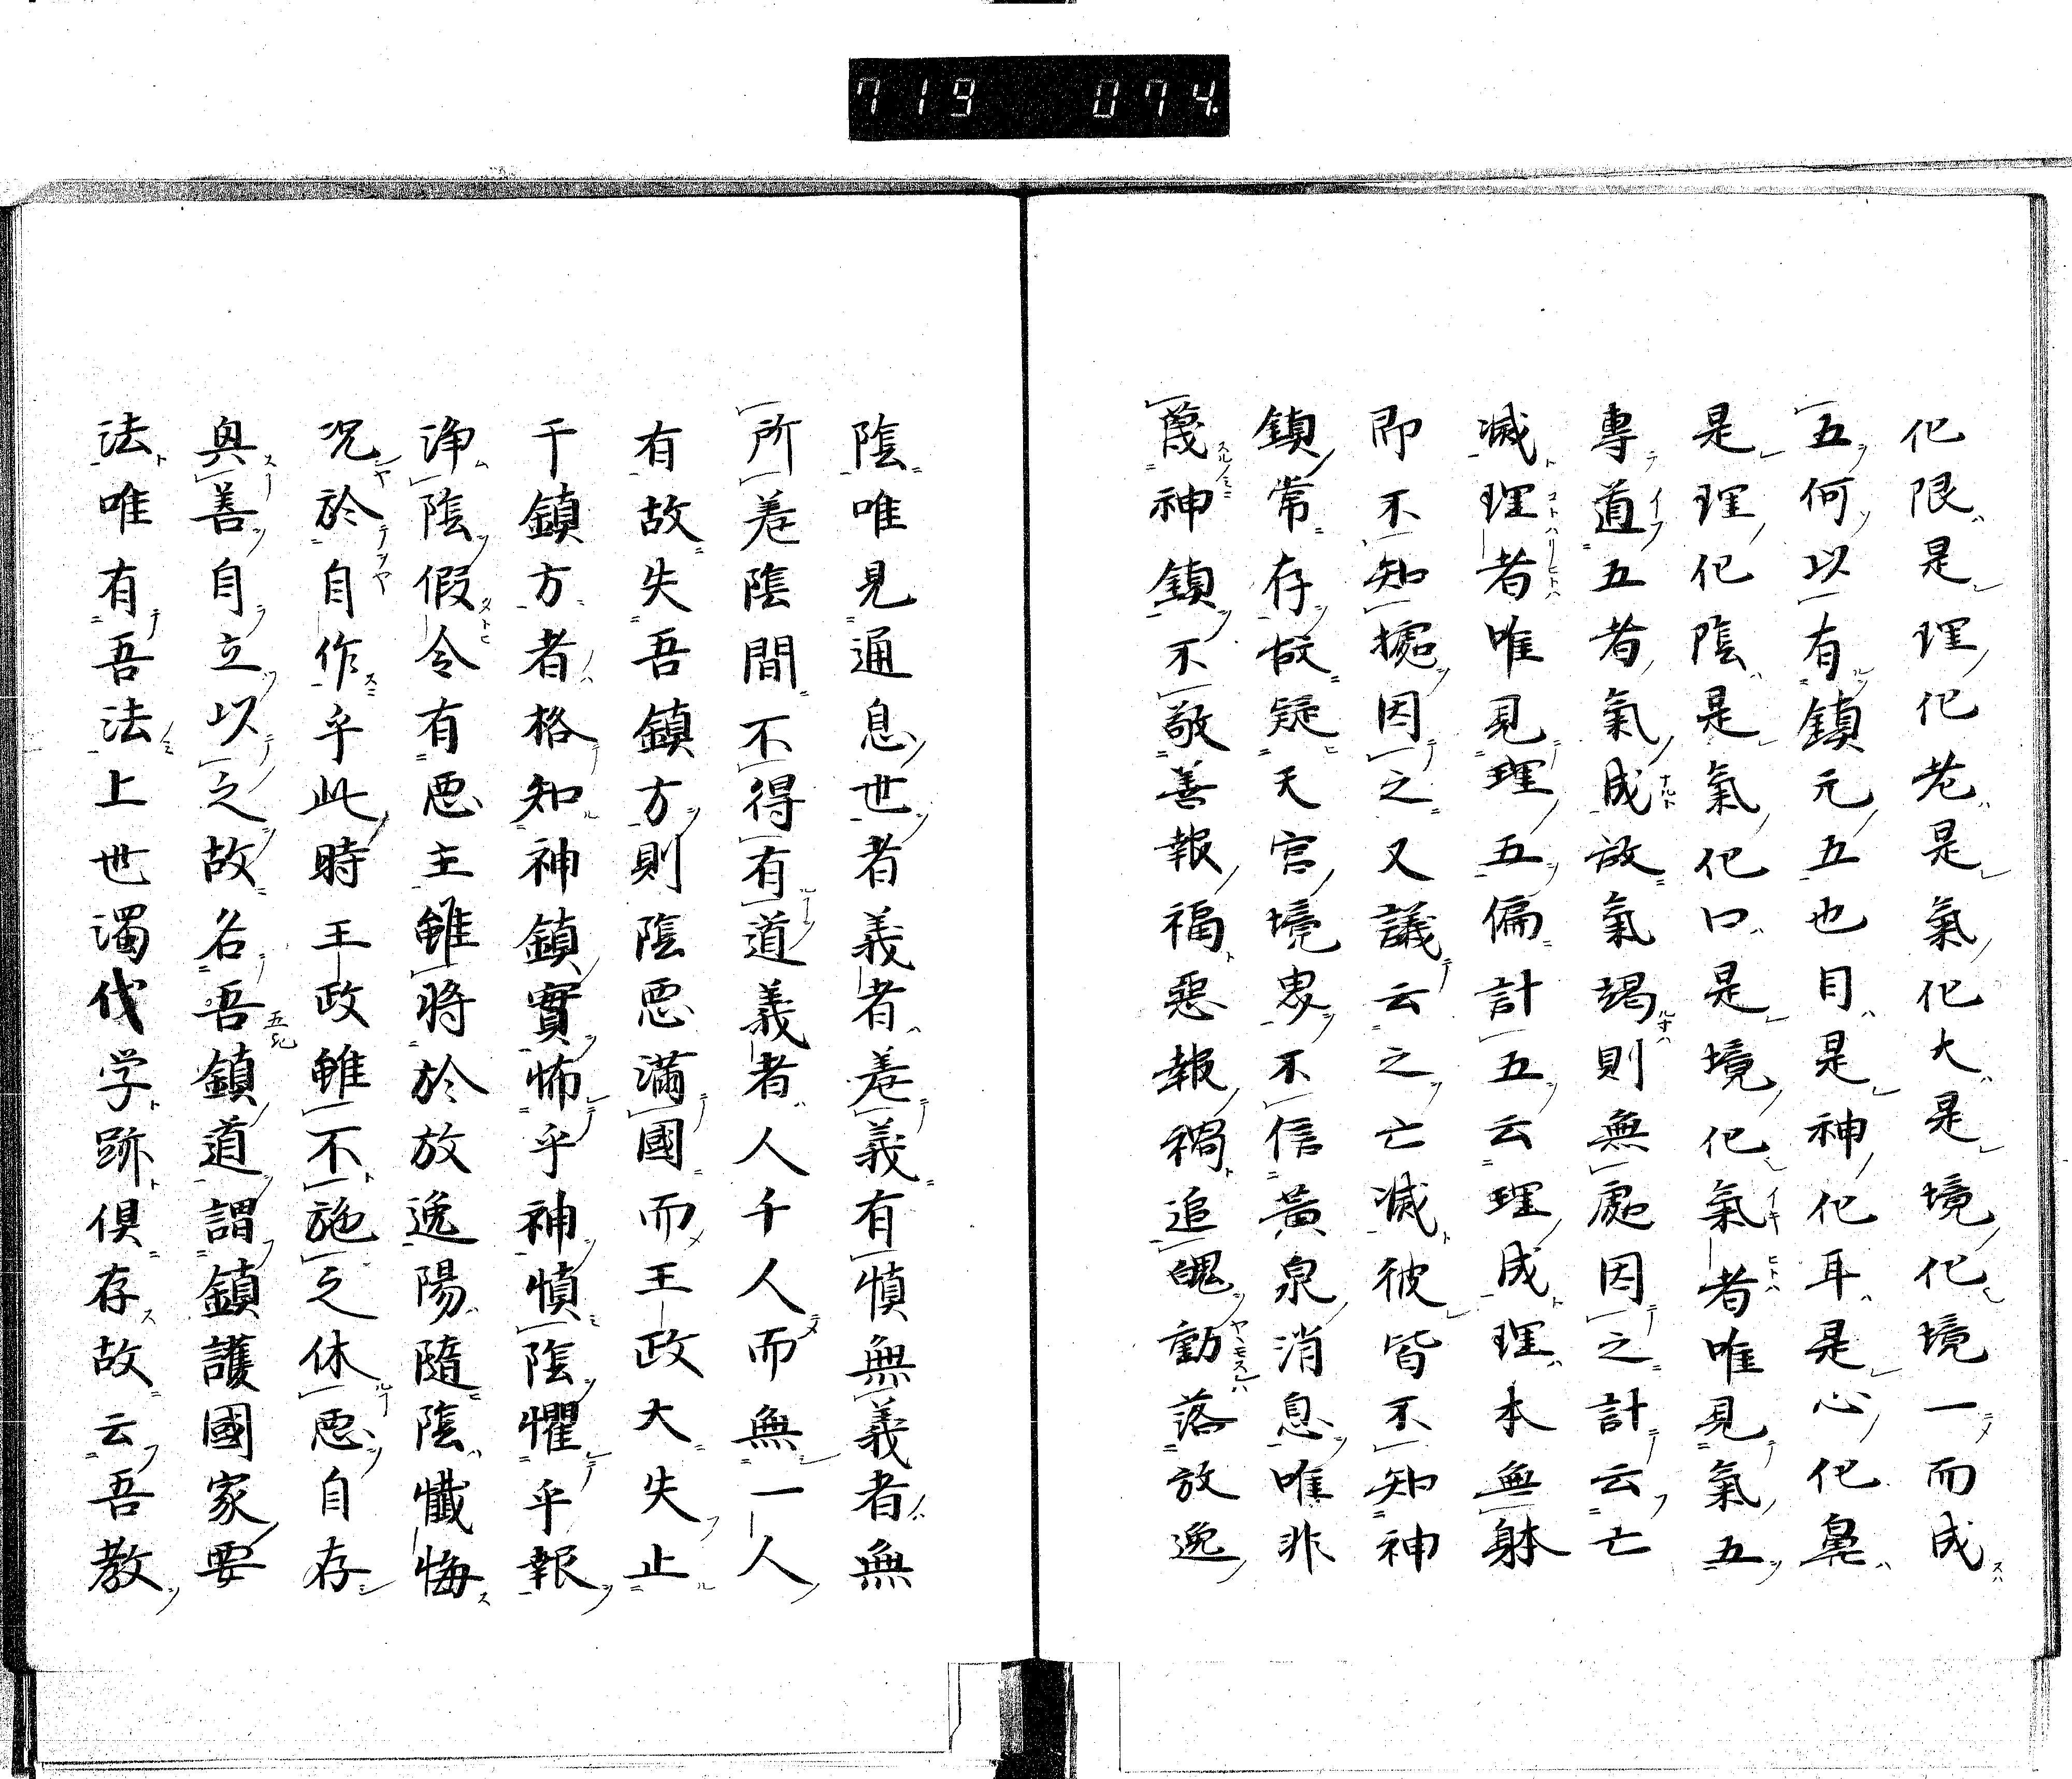 719 074
化限是理化老是氣化大是境化境一而成
五何以有鎮元五也目是神化耳是心化鼻
是理化陰是氣化口是境化氣者唯見氣五
專道五者氣成故氣竭則無處因之計云亡
滅理者唯見理五偏計五云理成理本無躰
即不知據因之又議云之亡滅彼皆不知神
鎮常存故疑天宮境界不信黃泉消息唯非
蔑神鎮不敬善報福惡報禍追魄勸落放逸
陰唯見通息世者義者差義有慎無義者無
所差陰間不得有道義者人千人而無一人
有故失吾鎮方則陰惡滿國而王政大失止
于鎮方者格知神鎮實怖乎神慎陰懼乎報
淨陰假令有惡主雖將於放逸陽隨陰懺悔
況於自作乎此時王政雖不施之休惡自存
與善自立以之故名吾鎮道謂鎮護國家要
法唯有吾法上世濁代学跡俱存故云吾教